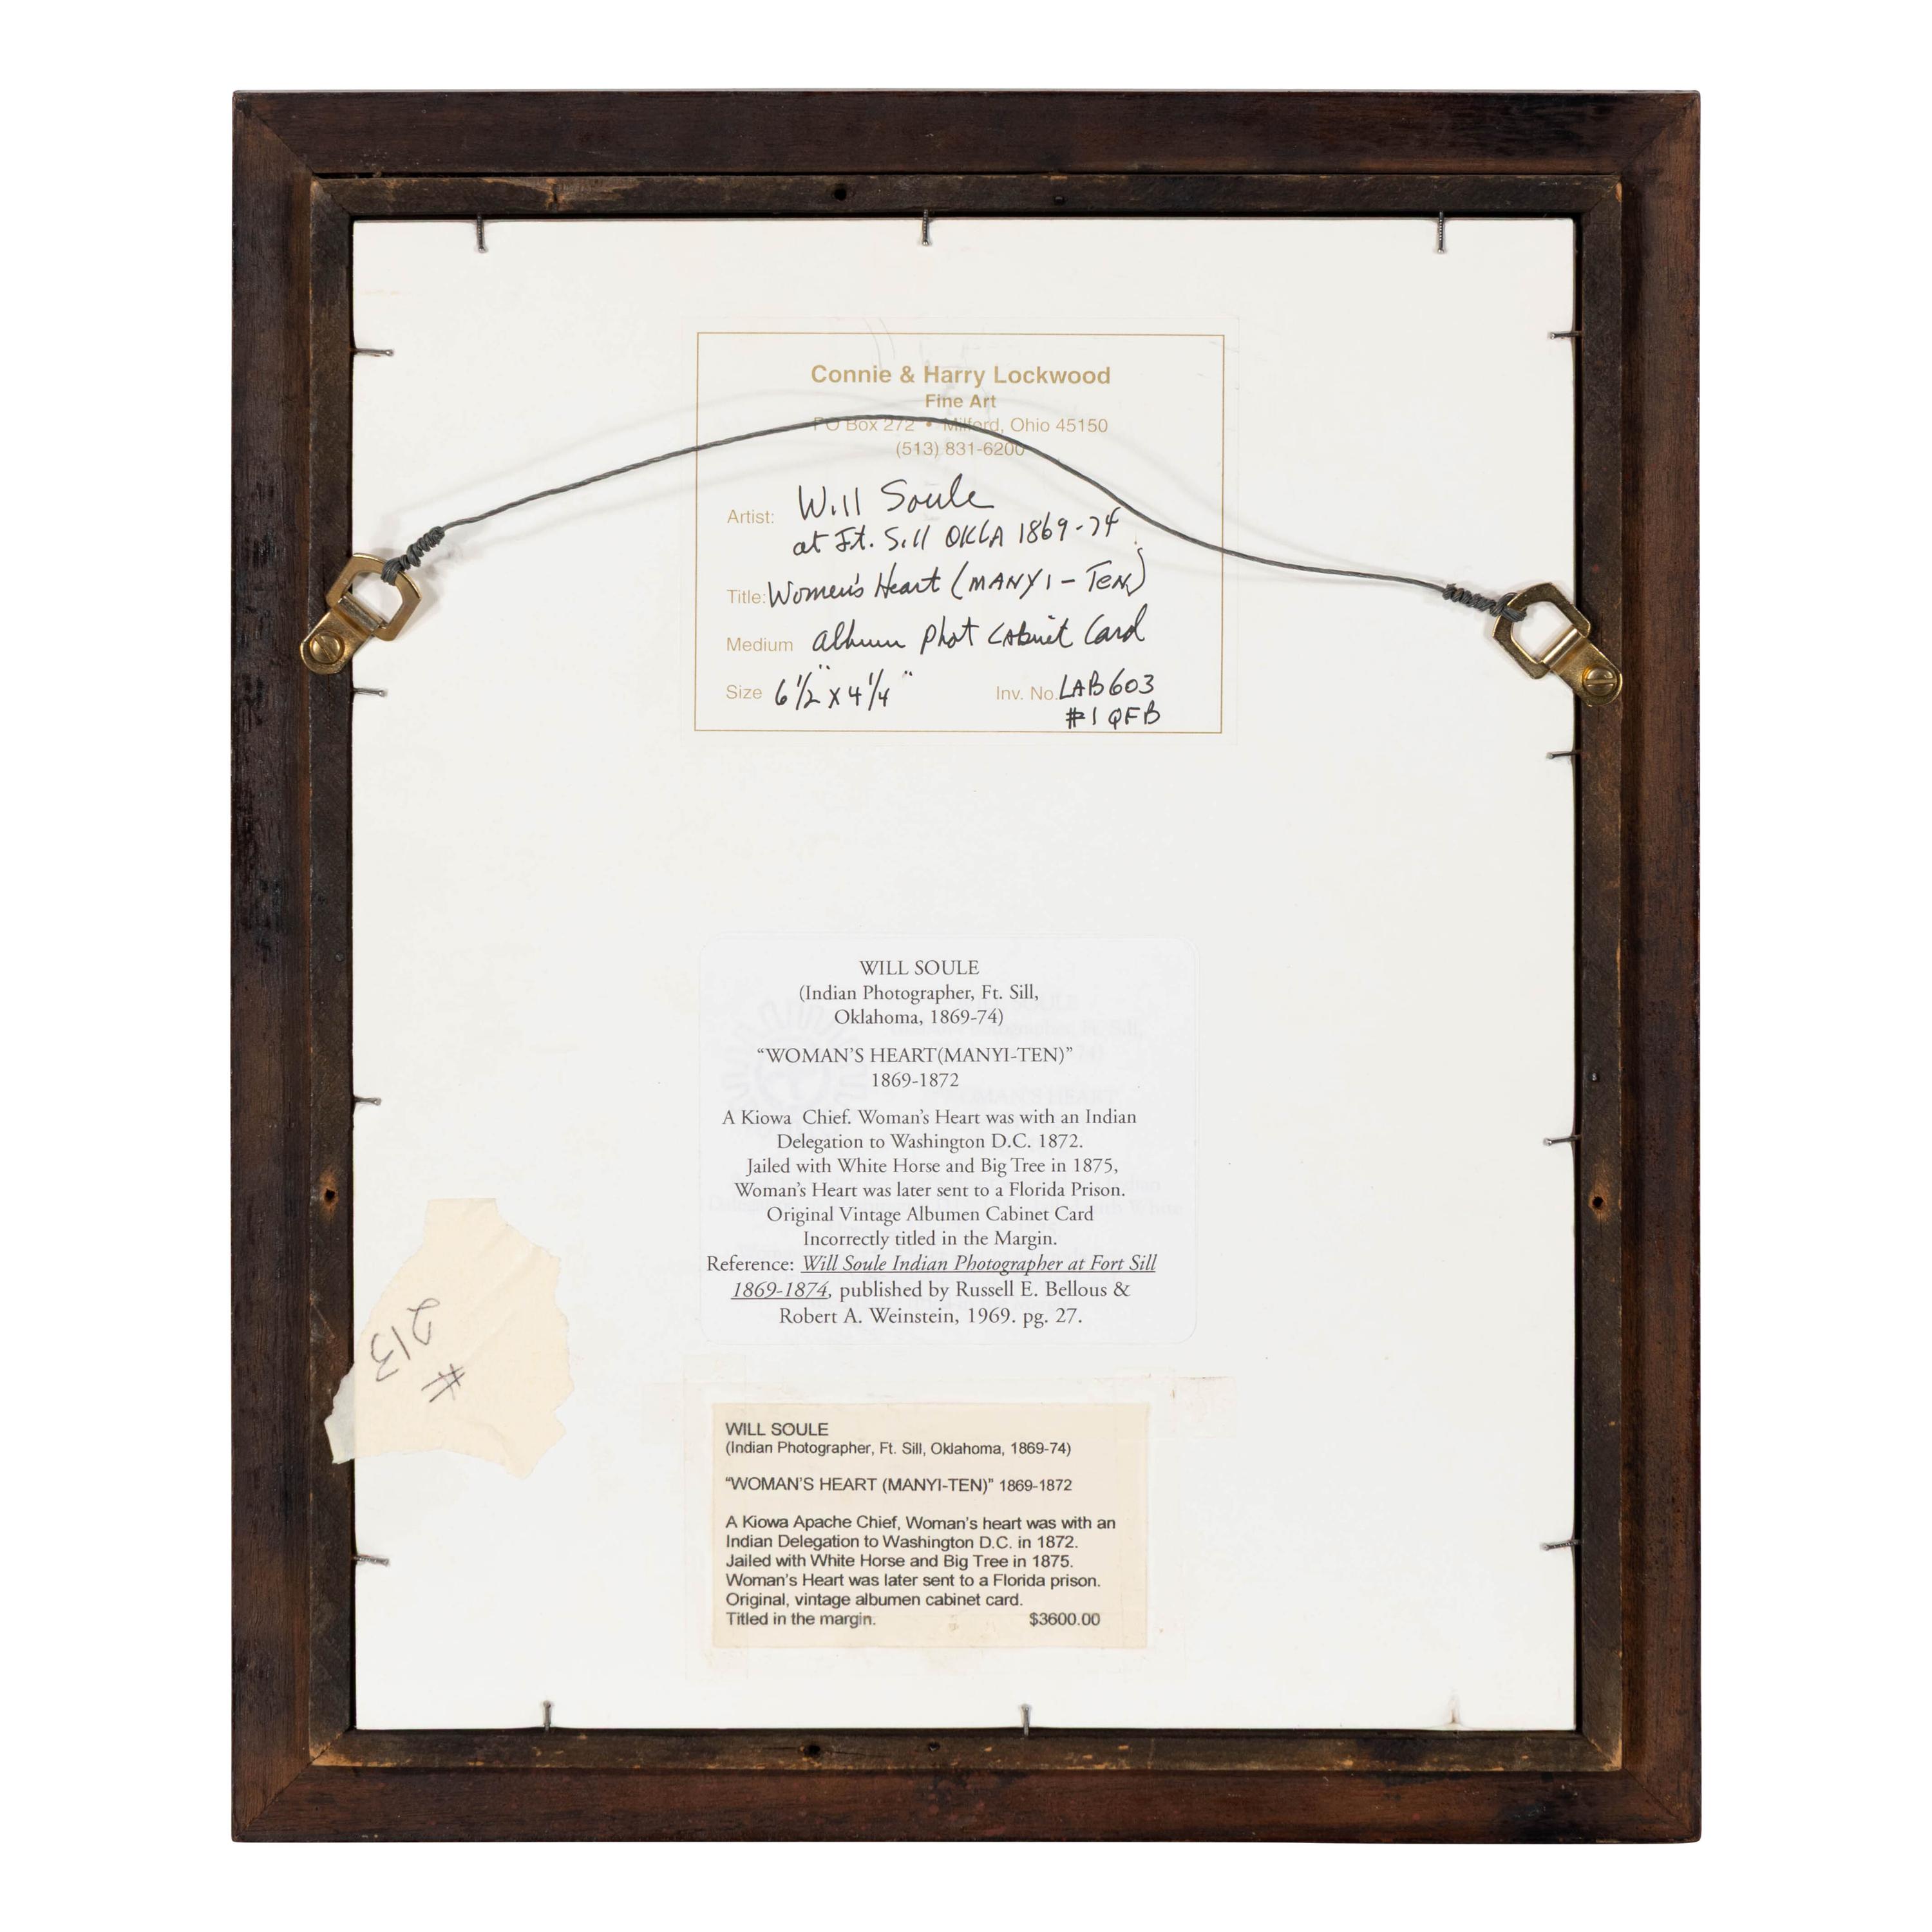 Connie & Harry Lockwood
Fine Art
PO Box 272 • Milford, Ohio 45150
(513) 831-6200
Artist: Will Soule
at Ft. Sill OKLA 1869-74
Title: Women's Heart (MANYI-TEN)
Medium Albumn Phot Cabinet Card
Size 6 1/2" x 4 1/4" Inv. No. LAB603
#1 QFB
WILL SOULE
(Indian Photographer, Ft. Sill,
Oklahoma, 1869-74)
“WOMAN’S HEART(MANYI-TEN)”
1869-1872
A Kiowa Chief. Woman’s Heart was with an Indian
Delegation to Washington D.C. 1872.
Jailed with White Horse and Big Tree in 1875,
Woman’s Heart was later sent to a Florida Prison.
Original Vintage Albumen Cabinet Card
Incorrectly titled in the Margin.
Reference: Will Soule Indian Photographer at Fort Sill
1869-1874, published by Russell E. Bellous &
Robert A. Weinstein, 1969. pg. 27.
# 213
WILL SOULE
(Indian Photographer, Ft. Sill, Oklahoma, 1869-74)
“WOMAN’S HEART (MANYI-TEN)” 1869-1872
A Kiowa Apache Chief, Woman’s heart was with an
Indian Delegation to Washington D.C. in 1872.
Jailed with White Horse and Big Tree in 1875.
Woman’s Heart was later sent to a Florida prison.
Original, vintage albumen cabinet card.
Titled in the margin. $3600.00